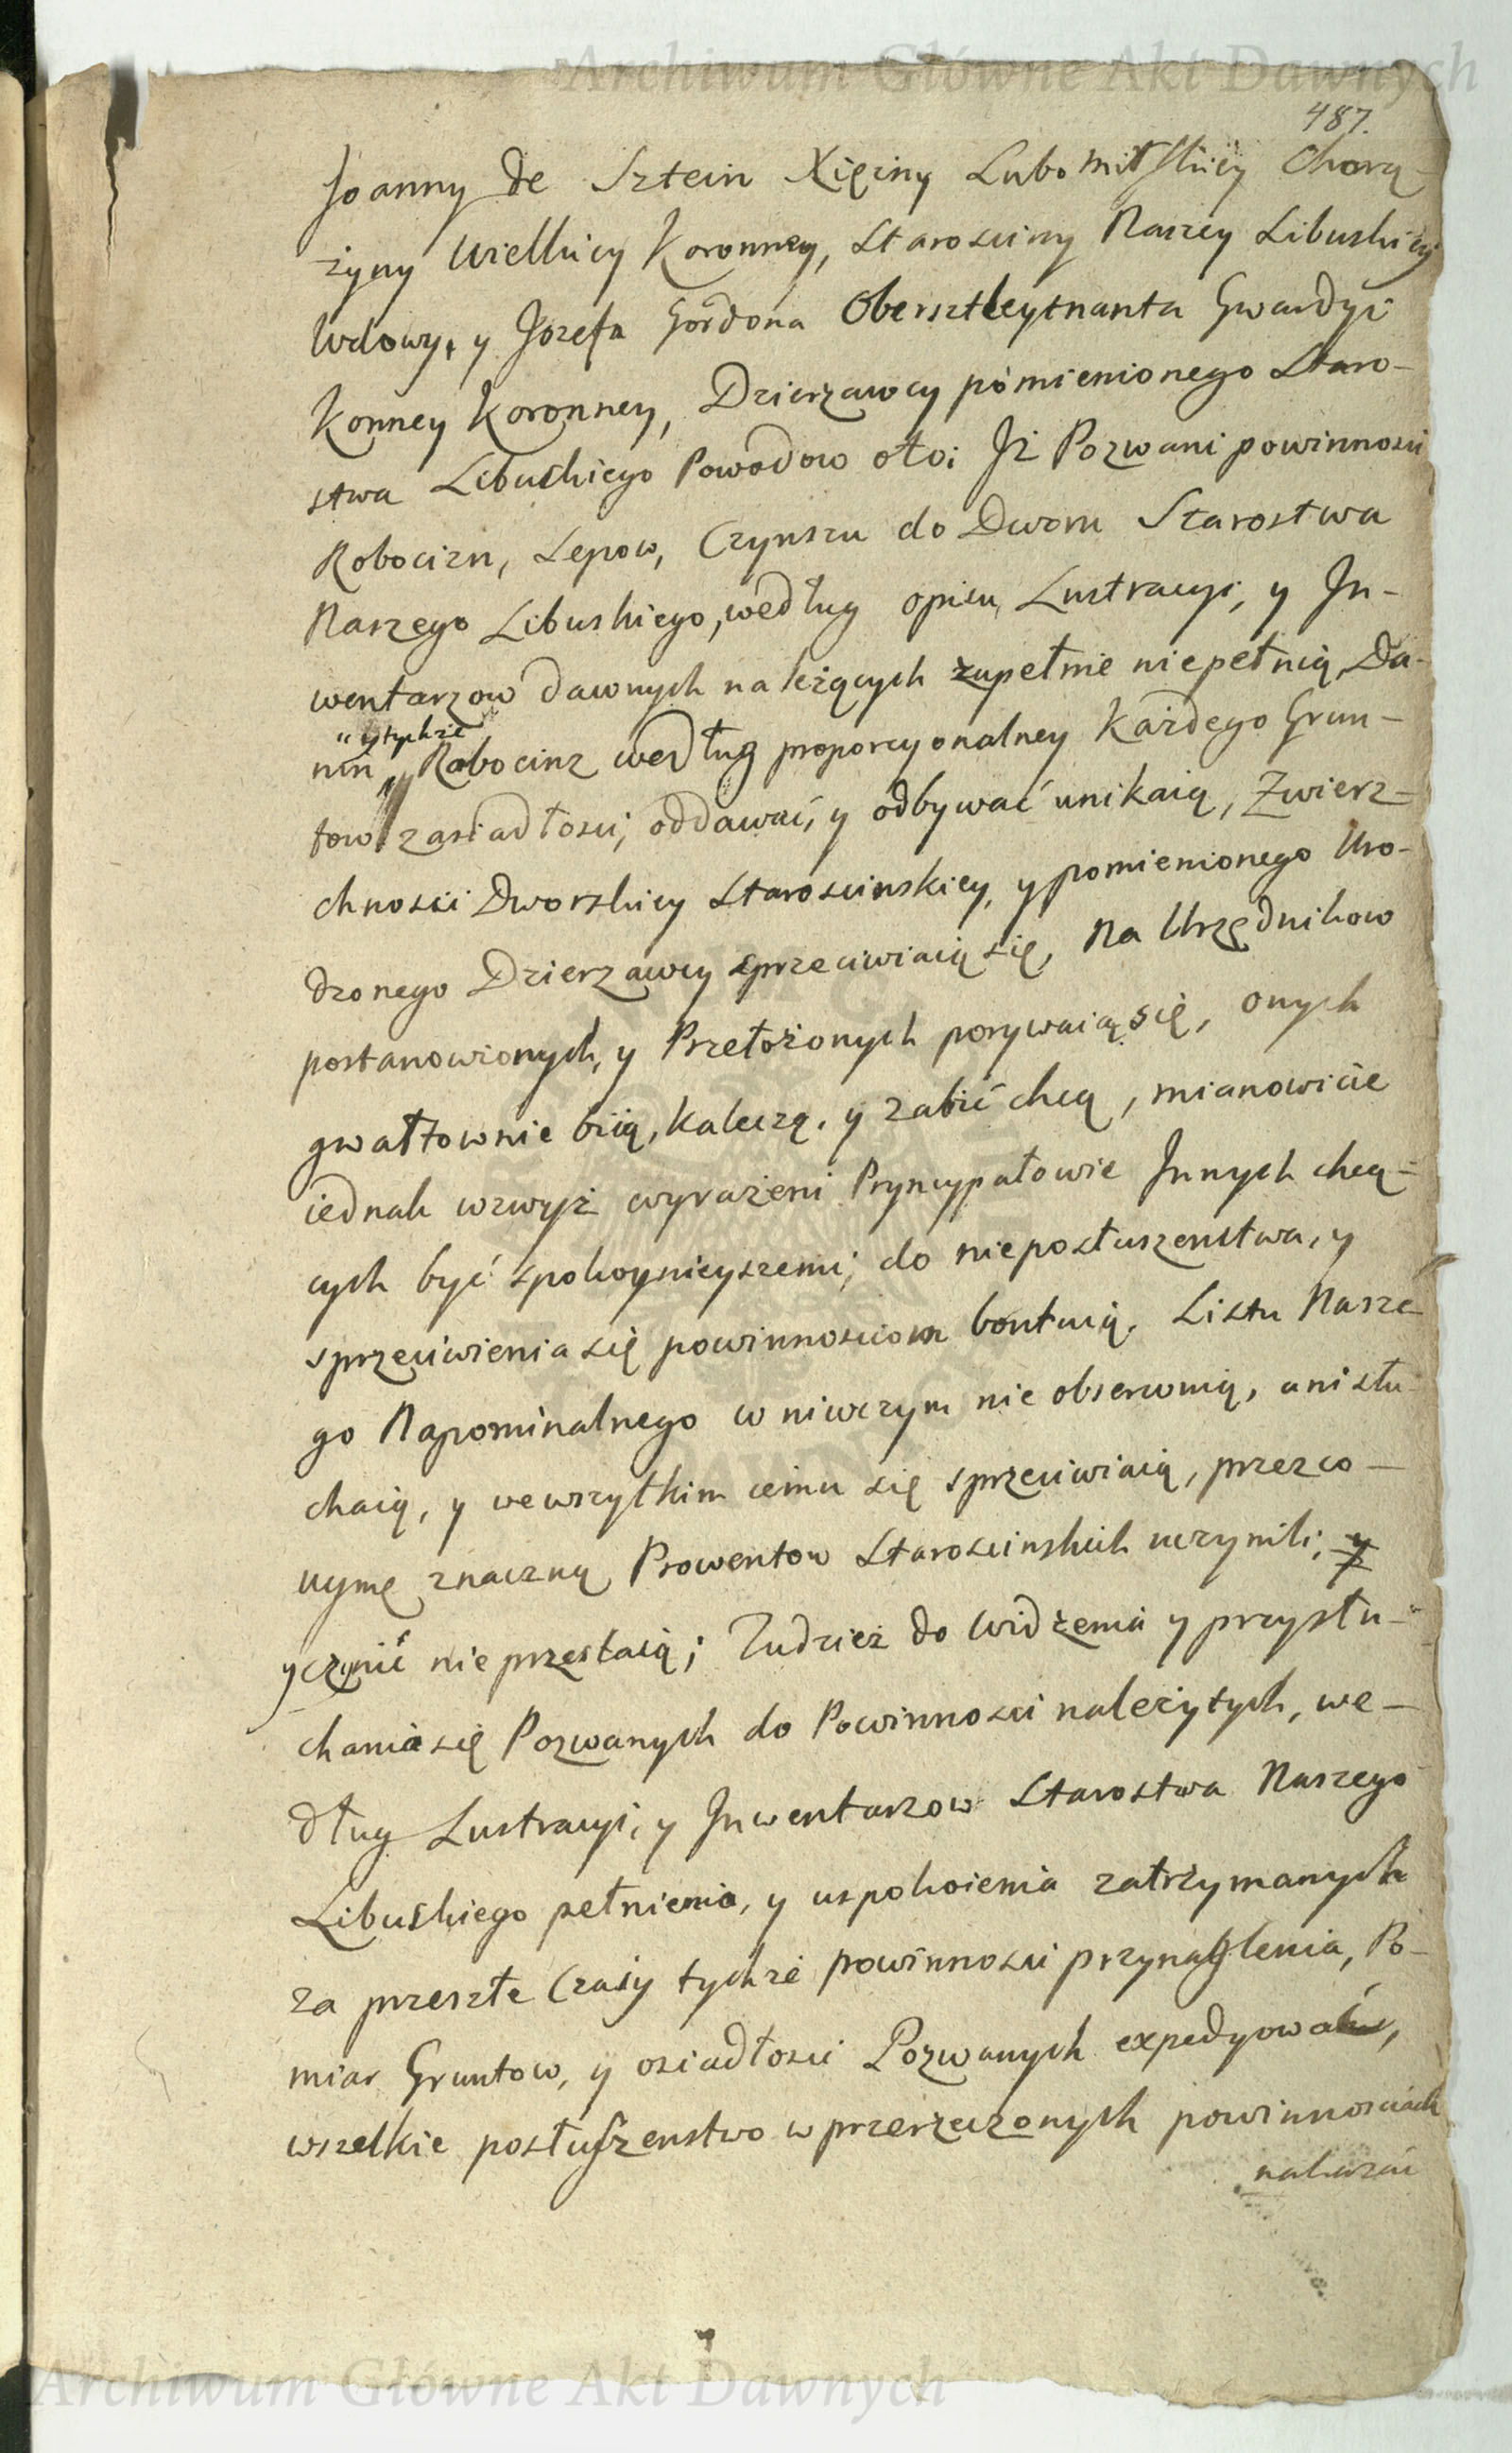 Archiwum Główne Akt Dawnych
487.
Joanny de Sztein Xięzny Lubomirskiey Chorą-
żyny Wielkiey Koronney, Starosciny Naszey Libuskiey
Wdowy, y Jozefa Gordona Obersztleytnanta Gwardyi
Konney Koronney, Dzierzawcy pomienionego Staro-
stwa Libuskiego Powodow oto; Iż Pozwani powinnosci
Robocizn, Sepow, Czynszu do Dworu Starostwa
Naszego Libuskiego, według opisu Lustracyi, y In-
wentarzow dawnych należących zupełnie niepełnią, Da-
" y tychże
nin " Robocinz według proporcyonalney Każdego Grun-
tow zasiadłosci, oddawać, y odbywać unikaią, Zwierz-
chnosci Dworskiey Staroscinskiey, y pomienionego Uro-
dzonego Dzierzawcy sprzeciwiaią się, Na Urzędnikow
postanowionych, y Przełożonych porywaią się, onych
gwałtownie biią, kaleczą, y zabić chcą, mianowicie
iednak wzwyż wyrażeni Pryncypałowie Innych chcą-
cych być spokoynieyszemi, do nieposłuszenstwa, y
sprzeciwienia się powinnosciom bontuią, Listu Nasze-
go Napominalnego w niwczym nie obserwuią, ani słu-
chaią, y wewszytkim iemu się sprzeciwiaią, przez co-
uymę znaczną Prowentow Staroscinskich uczynili, y
y czynić nie przestaią; Tudzież do widzenia y przysłu-
chania się Pozwanych do Powinnosci należytych, we-
dług Lustracyi, y Inwentarzow Starostwa Naszego
Libuskiego pełnienia, y uspokoienia zatrzymanych
za przeszłe Czasy tychże powinnosci przynaglenia, Po-
miar Gruntow, y osiadłosci Pozwanych expedyować,
wszelkie posłuszenstwo w przerzeczonych powinnosciach
nakazać
Archiwum Główne Akt Dawnych